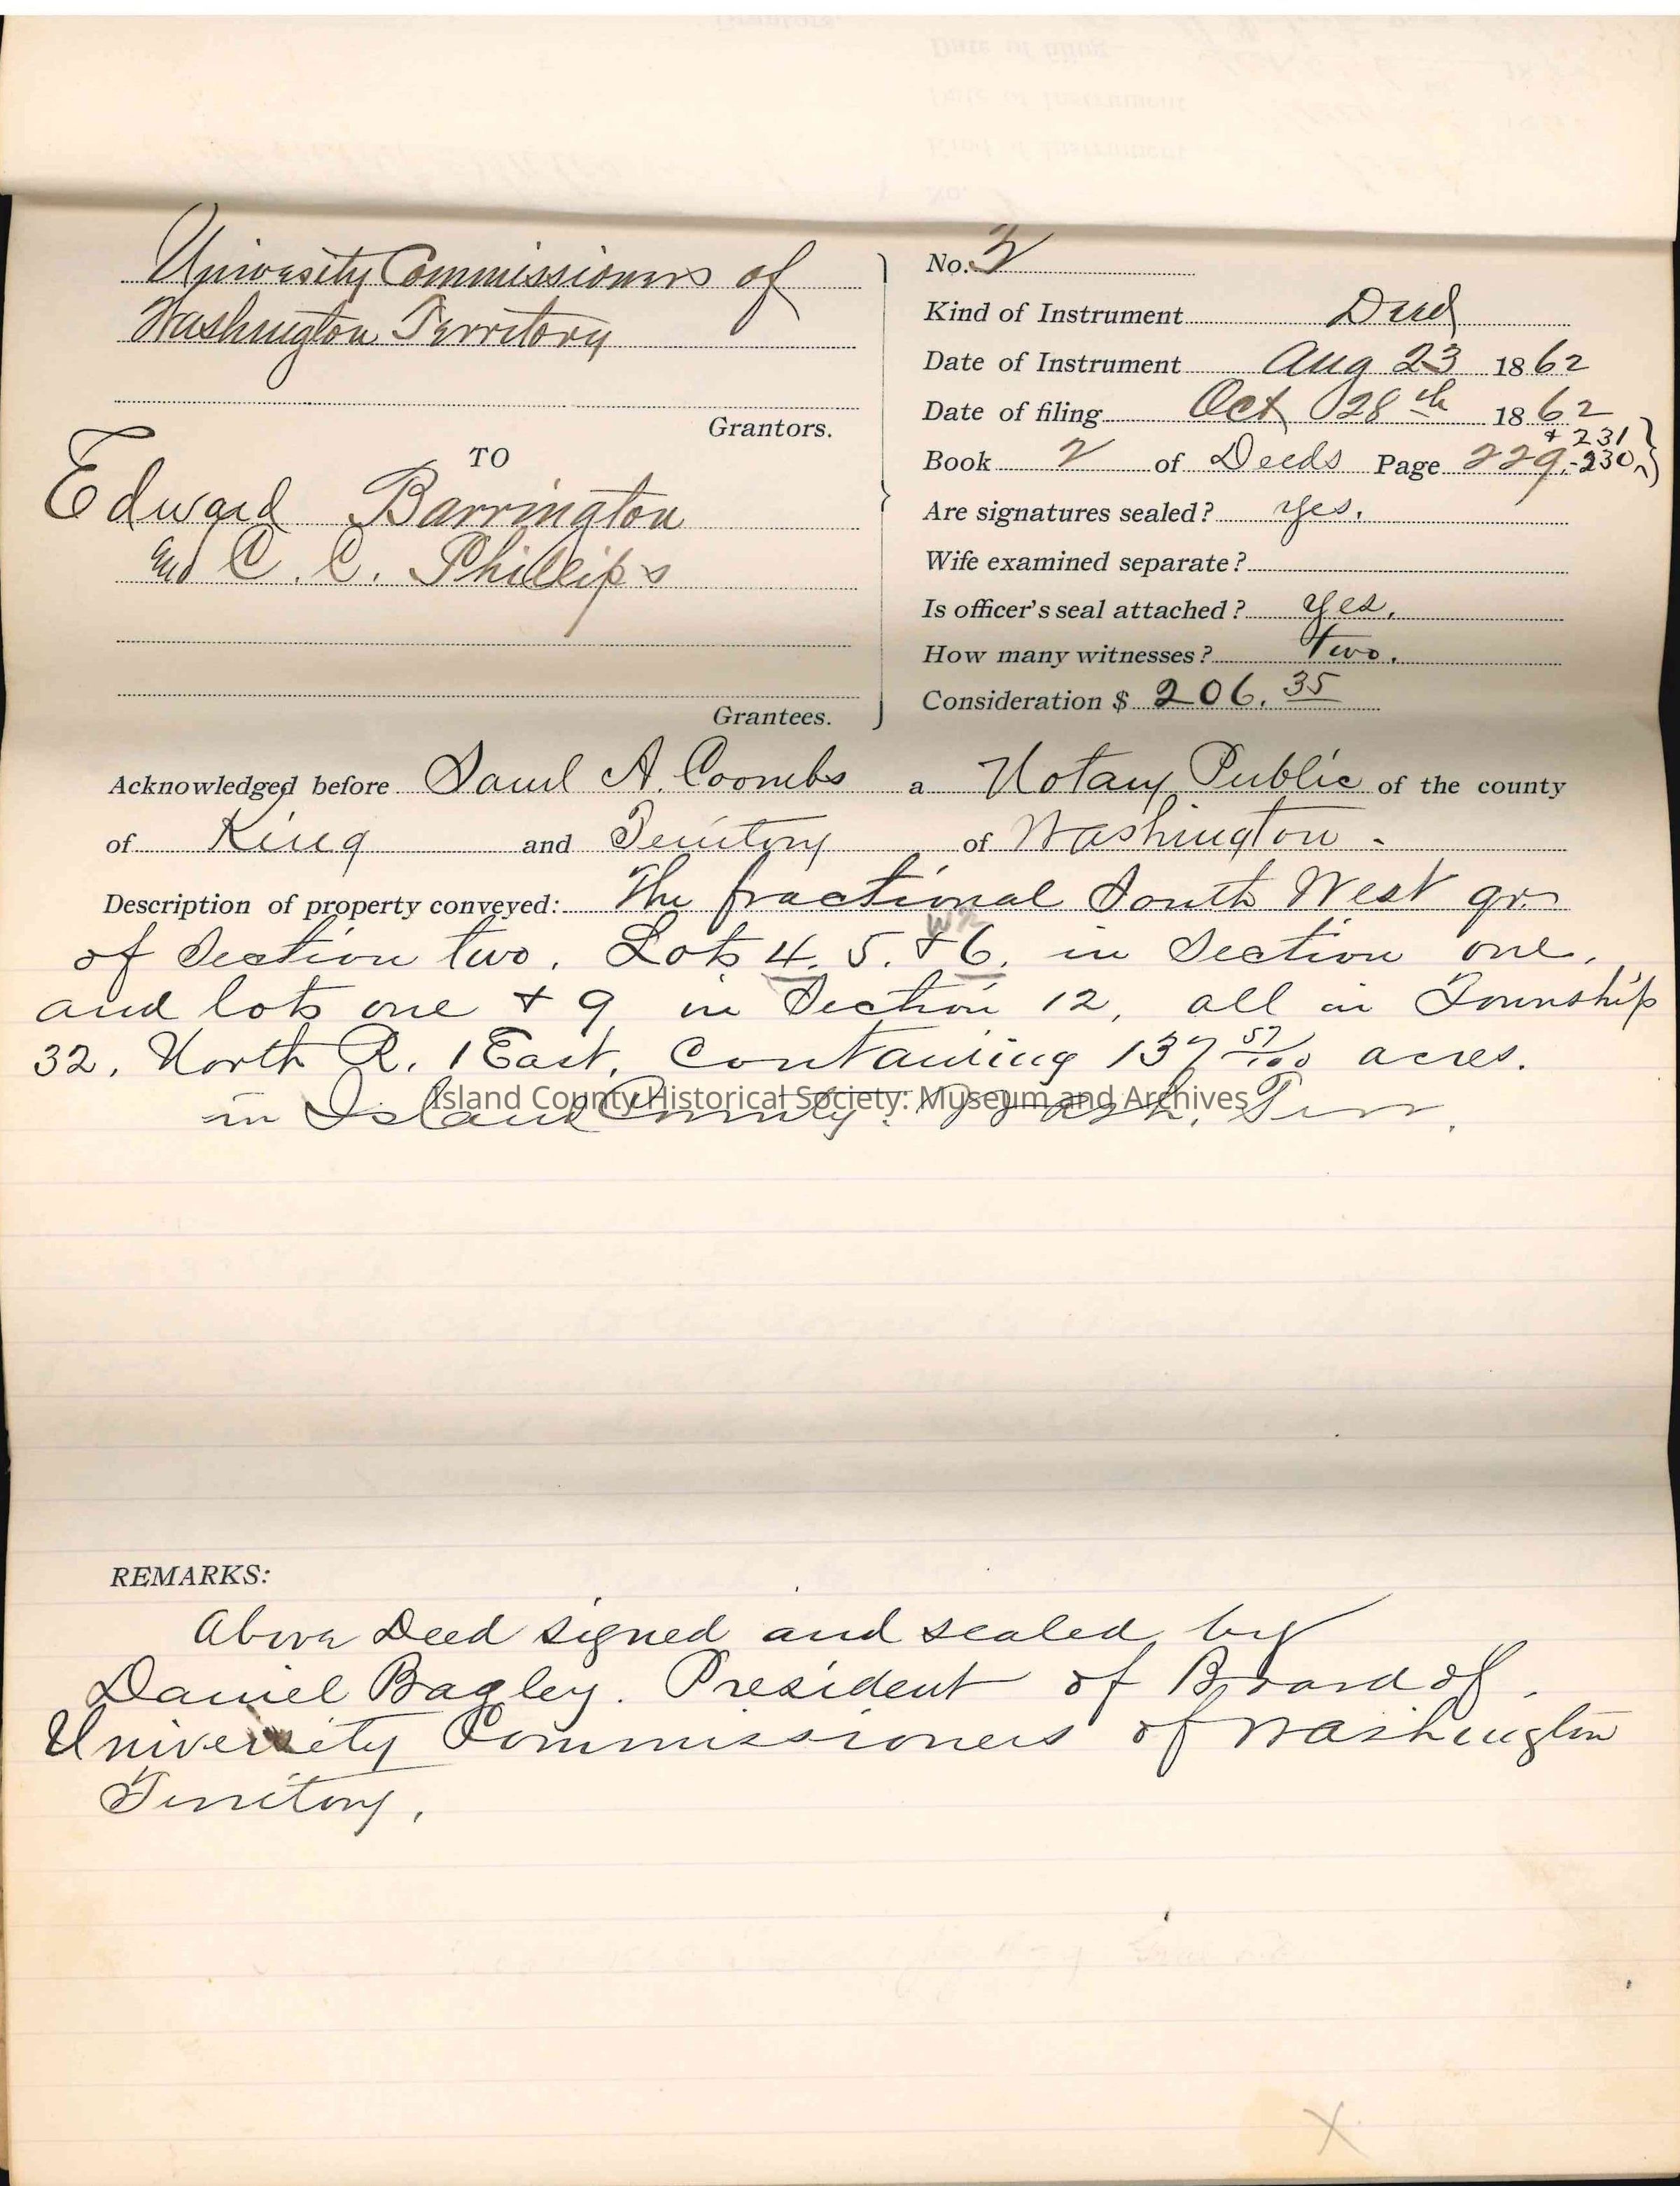 University Commissioners of
Washington Territory
Grantors.
TO
Edward Barrington
and C. C. Phillips
Grantees.
No. 2
Kind of Instrument Deed
Date of Instrument Aug 23 1862
Date of filing Oct 28th 1862
Book 2 of Deeds Page 229,-230, & 231
Are signatures sealed? yes.
Wife examined separate?
Is officer's seal attached? yes.
How many witnesses? Two.
Consideration $ 206. 35
Acknowledged before Saml A. Coombs a Notary Public of the county
of King and Territory of Washington -
Description of property conveyed: The fractional South West qr.
of Section two. Lots 4, 5. & 6. in Section one,
and lots one & 9 in Section 12, all in Township
32, North R. 1 East, Containing 137 57/100 acres.
in Island County. Wash, Terr.
Island County Historical Society: Museum and Archives
REMARKS:
Above Deed signed and sealed by
Daniel Bagley. President of Board of.
University Commissioners of Washington
Territory.
X